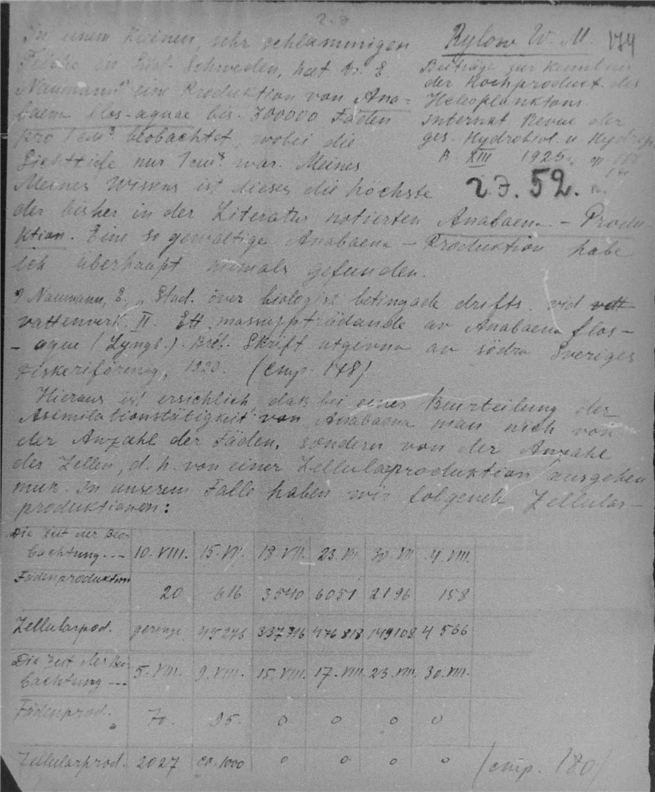 2.8
In einem kleinen, sehr schlammigen
Teiche in Süd. Schweden, hat Dr. E.
Naumann eine Produktion von Ana-
baena flos-aquae bis 700000 Fäden
pro 1 cm³ beobachtet, wobei die
Sichttiefe nur 1 cm war. Meines
Meines Wissens ist dieses die höchste
der bisher in der Literatur notierten Anabaena – Produ-
ktion. Eine so gewaltige Anabaena – Produktion habe
ich überhaupt niemals gefunden.
Rylow W. M. 174
Beiträge zur Kenntnis
der Hochproduct. des
Heleoplanktons
Internat Revue der
ges. Hydrobiol. u Hydrogr.
B. XIII 1925
27.52.
Naumann, E., Stud. över biologisk betingade drifts. vid
vattenverk II. Ett massuppträdande av Anabaena flos-
- aquae (Lyngb.) Bréb. Skrift utgivna av södra Sveriges
Fiskeriförening, 1923. (стр. 178)
Hieraus ist ersichtlich dass bei einer Beurteilung der
Asimilationstätigkeit von Anabaena man nich von
der Anzahl der Fäden, sondern von der Anzahl
der Zellen, d. h. von einer Zellularproduktion ausgehen
muss. In unserem Falle haben wir folgende Zellular-
produktionen:
Die Zeit der Beo-
bachtung --- 10. VIII. 15. VI. 18. VII. 23. VII. 30. VII 4. VIII.
Fädenproduktion 20 616 3540 6051 2196 158
Zellularprod. geringe 45276 337716 476818 149108 4566
Die Zeit der Beo-
bachtung --- 5. VIII. 9. VIII. 15. VIII. 17. VIII. 23. VIII. 30. VIII.
Fädenprod. 70. 95 0 0 0 0
Zellularprod. 2027 ca. 1000 0 0 0 0
(стр. 180)